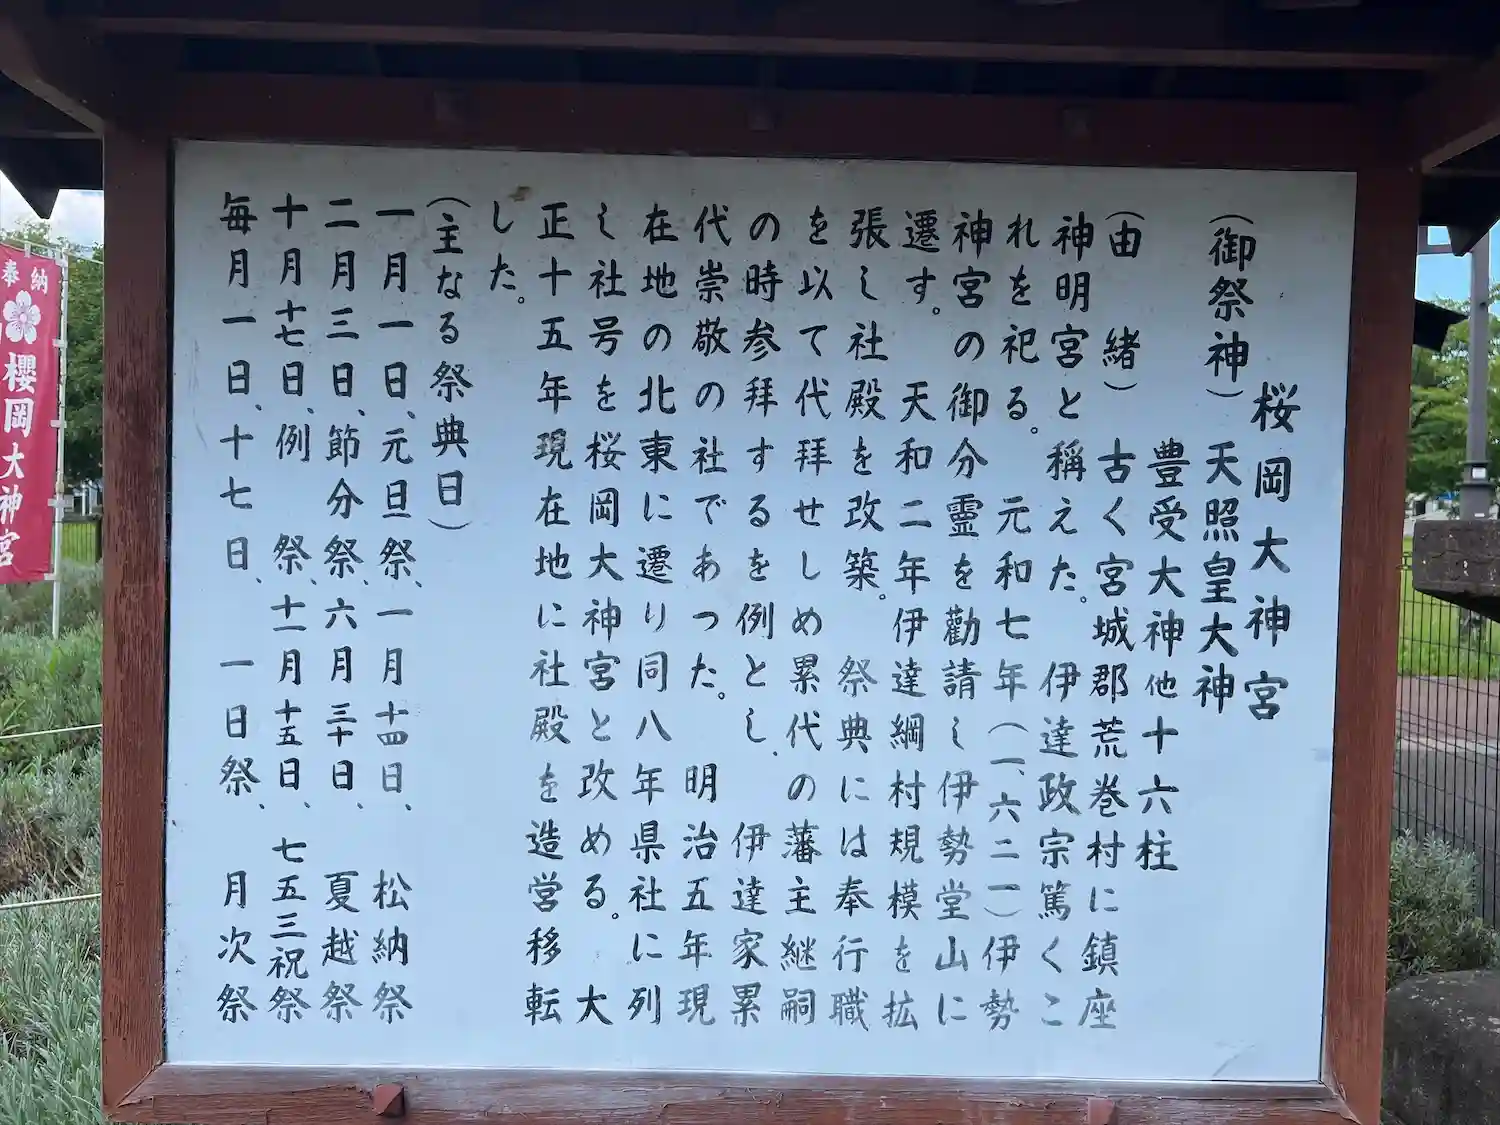 桜岡大神宮
(御祭神)天照皇大神
豊受大神他十六柱
(由　緒)古く宮城郡荒巻村に鎮座
神明宮と稱えた。伊達政宗篤くこ
れを祀る。元和七年(一、六二一)伊勢
神宮の御分霊を勸請し伊勢堂山に
遷す。天和二年伊達綱村規模を拡
張し社殿を改築。祭典には奉行職
を以て代拝せしめ累代の藩主継嗣
の時参拝するを例とし、伊達家累
代崇敬の社であった。明治五年現
在地の北東に遷り同八年県社に列
し社号を桜岡大神宮と改める。大
正十五年現在地に社殿を造営移転
した。
(主なる祭典日)
一月一日、元旦祭、一月十四日、松納祭
二月三日、節分祭、六月三十日、夏越祭
十月十七日、例　祭、十一月十五日、七五三祝祭
毎月一日、十七日、一日祭、月次祭
奉納
櫻岡大神宮